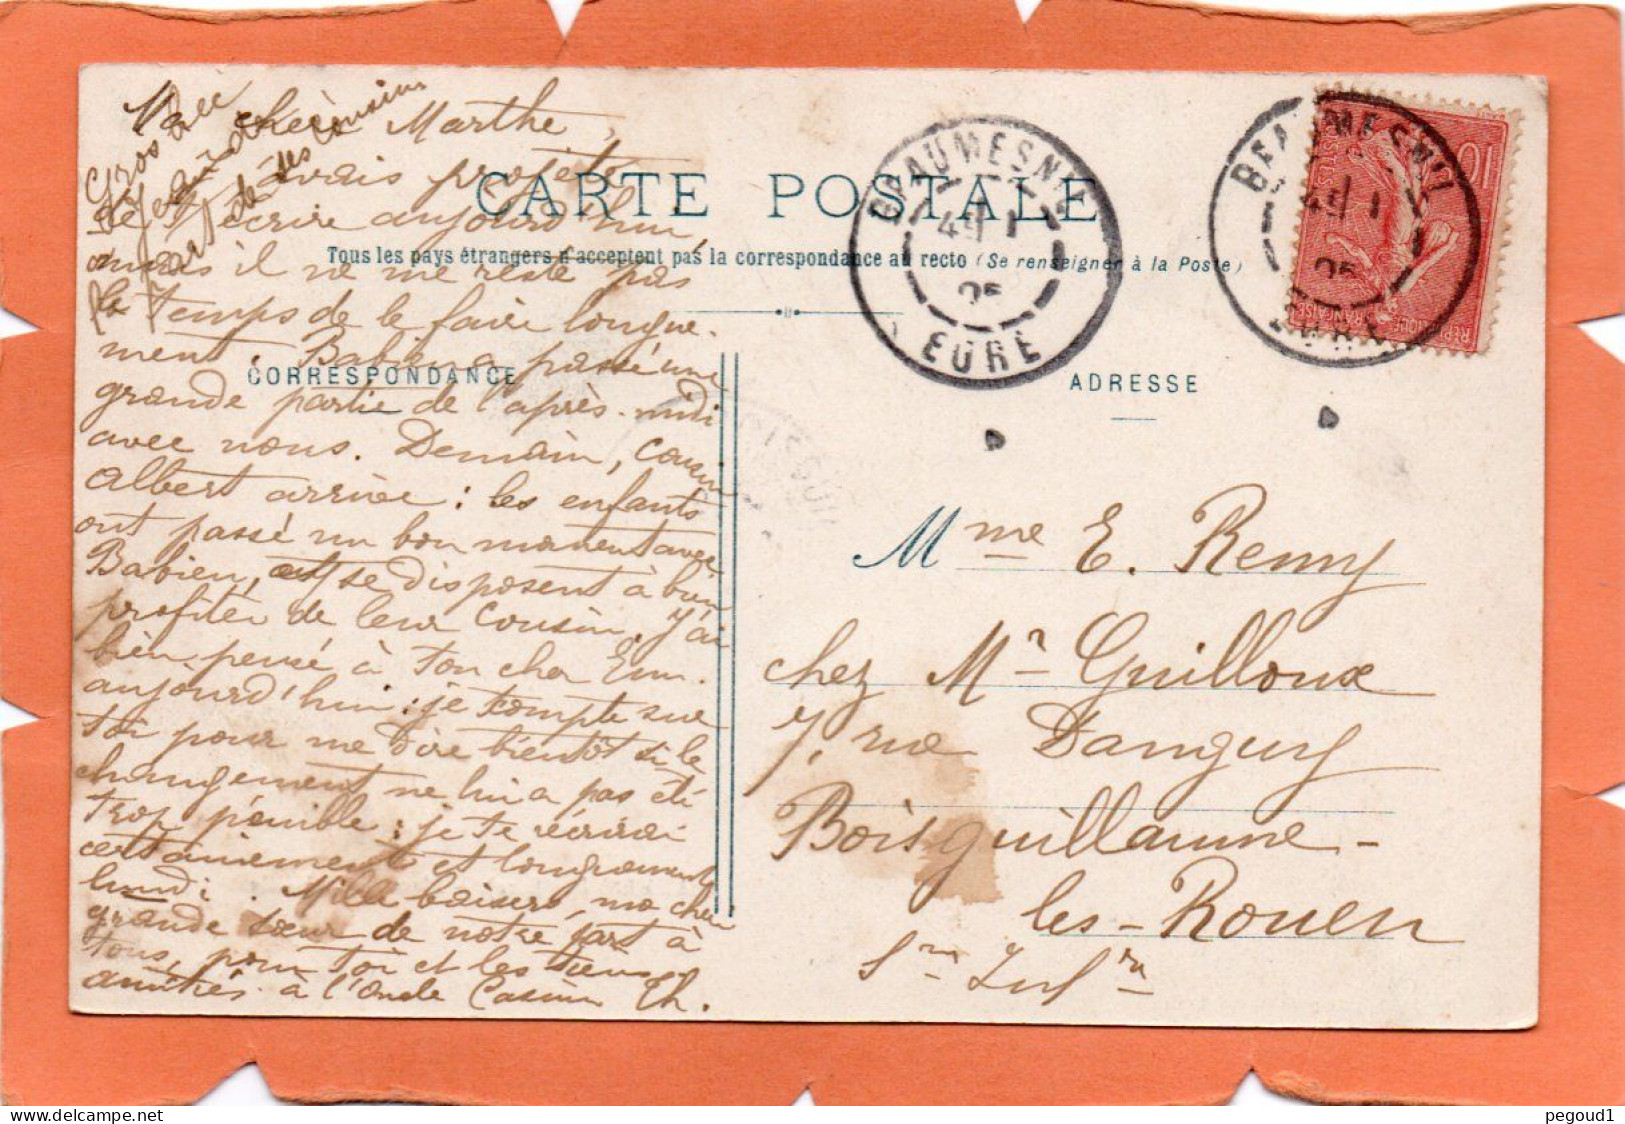 Ma chère Marthe,
J'avais projeté
de t'écrire aujourd'hui,
mais il ne me reste pas
le temps de le faire longue-
ment. Babien a passé une
grande partie de l'après-midi
avec nous. Demain, cousin
Albert arrive : les enfants
ont passé un bon moment avec
Babien, et se disposent à bien
profiter de leur cousin. J'ai
bien pensé à ton cher Emm.
aujourd'hui : je compte sur
toi pour me dire bientôt si le
changement ne lui a pas été
trop pénible : je te récrirai
certainement et longuement
lundi. Mille baisers, ma chère
grande sœur de notre part à
tous, pour toi et les tiens.
amitiés à l'oncle Casimir Th.
Gros bec
de ses cousins
CARTE POSTALE
Tous les pays étrangers n'acceptent pas la correspondance au recto (Se renseigner à la Poste)
CORRESPONDANCE
ADRESSE
BEAUMESNIL
1
05
EURE
BEAUMESNIL
1
05
EURE
10
POSTES
REPUBLIQUE FRANÇAISE
Mme E. Remy
chez Mr Guilloux
7, rue Danguy
Boisguillaume-
les-Rouen
Sne Infre
pegoud1